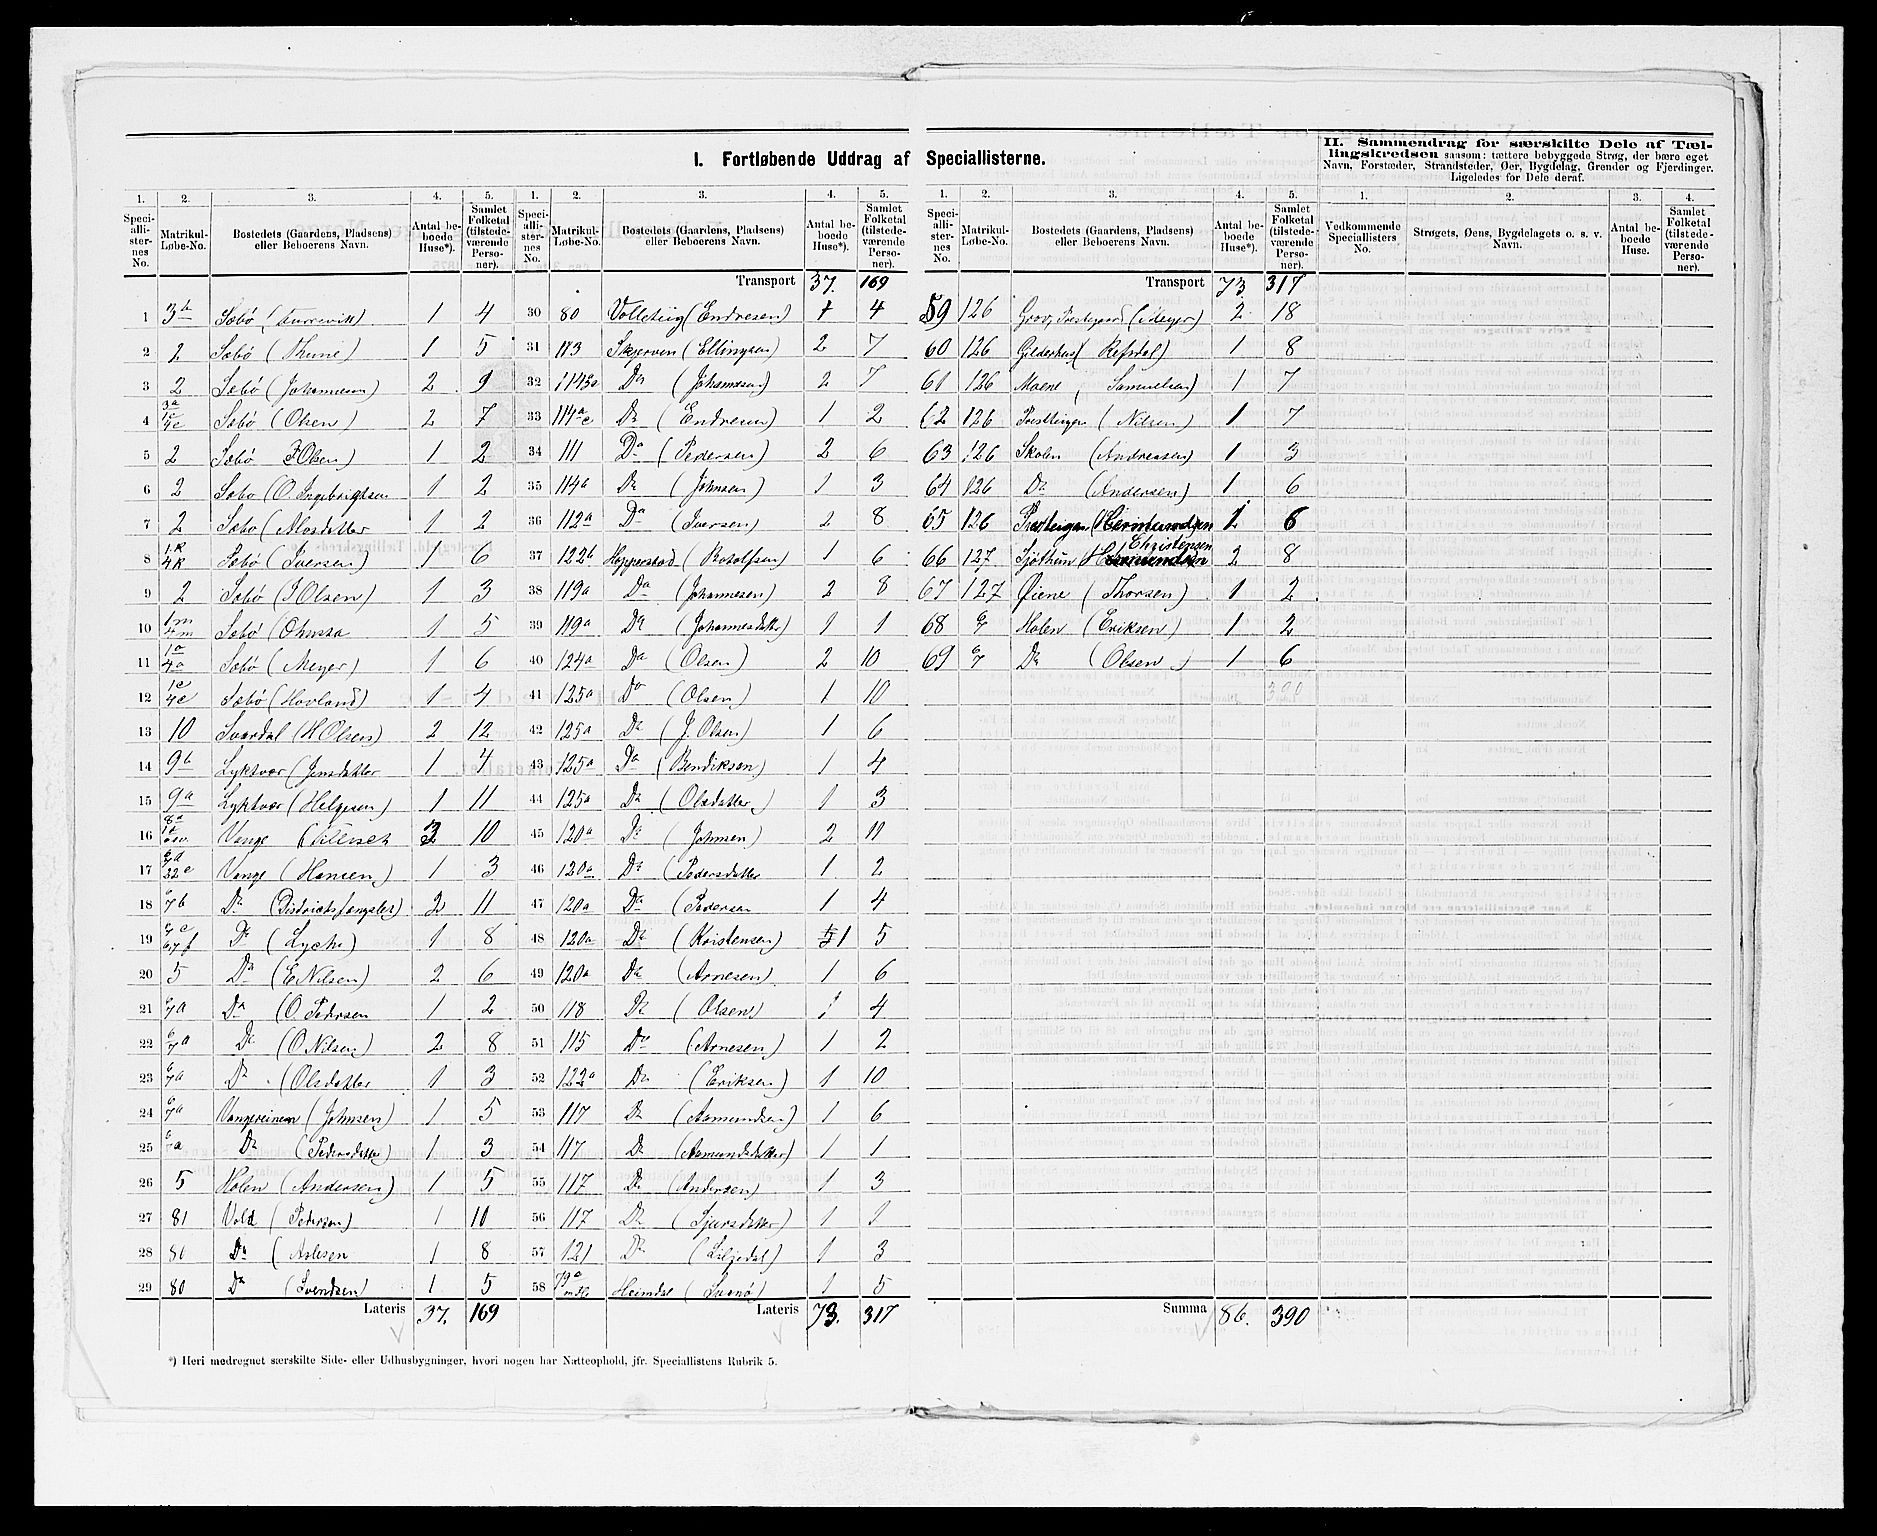 I. Fortløbende Uddrag af Speciallisterne.
II. Sammendrag for særskilte Dele af Tæl-
lingskredsen saasom: tættere bebyggede Strøg, der bære eget
Navn, Forstæder, Strandsteder, Øer, Bygdelag, Grender og Fjerdinger.
Ligeledes for Dele deraf.
1. 2. 3. 4. 5. 1. 2. 3. 4. 5. 1. 2. 3. 4. 5. 1. 2. 3. 4.
Speciallisternes No. Matrikul-Løbe-No. Bostedets (Gaardens, Pladsens) eller Beboerens Navn. Antal beboede Huse*). Samlet Folketal (tilstedeværende Personer).
Speciallisternes No. Matrikul-Løbe-No. Bostedets (Gaardens, Pladsens) eller Beboerens Navn. Antal beboede Huse*). Samlet Folketal (tilstedeværende Personer).
Speciallisternes No. Matrikul-Løbe-No. Bostedets (Gaardens, Pladsens) eller Beboerens Navn. Antal beboede Huse*). Samlet Folketal (tilstedeværende Personer).
Vedkommende Speciallisters No. Strøgets, Øens, Bygdelagets o. s. v. Navn. Antal beboede Huse. Samlet Folketal (tilstedeværende Personer).
1 3b Sæbø 1 4
2 2 Sæbø (Thune) 1 5
3 2 Sæbø (Johannesen) 2 9
4 Sæbø (Olsen) 2 7
5 2 Sæbø Olsen) 1 2
6 2 Sæbø (O. Ingebrigtsen 1 2
7 2 Sæbø 1 2
8 1k 4k Sæbø (Iversen) 1 6
9 2 Sæbø (J Olsen) 1 3
10 1m 4m Sæbø 1 5
11 1a 4a Sæbø (Meyer) 1 6
12 1c 4c Sæbø (Hovland) 1 4
13 10 Svardal (H Olsen) 2 12
14 9b Lyktvor (Jensdatter 1 4
15 9a Lyktvor (Helgesen) 1 11
16 Vange 3 10
17 Vange (Hansen) 1 3
18 6 7b Do (Districtsfængslet) 2 11
19 Do (Lyche) 1 8
20 5 Do (E Nilsen) 2 6
21 6 7a Do (O. Pedersen 1 2
22 6 7a Do (O Nilsen) 2 8
23 6 7a Do (Olsdatter 1 3
24 6 7a Vangereinen (Johnsen) 1 5
25 6 7a Do (Pedersdatter) 1 3
26 5 Holen (Andersen) 1 5
27 81 Vold (Pedersen) 1 10
28 80 Do (Aslesen 1 8
29 80 Do (Svendsen) 1 5
Lateris 37. 169
Transport 37. 169
30 80 Volleteig (Endresen) 1 4
31 113 Skjerven (Ellingsen) 2 7
32 Do (Johannesen) 2 7
33 114a c Do (Endresen) 1 2
34 111 Do (Pedersen) 2 6
35 114a Do (Johnsen) 1 3
36 112a Do (Iversen) 2 8
37 122b Hopperstad (Rotolfsen) 1 6
38 119a Do (Johannesen) 2 8
39 119a Do (Johannesdatter) 1 1
40 124a Do (Olsen) 2 10
41 125a Do (Olsen) 1 10
42 125a Do (J. Olsen) 1 6
43 125a Do (Bendiksen) 1 4
44 125a Do (Olsdatter) 1 3
45 120a Do (Johnsen) 2 11
46 120a Do (Pedersdatter 1 2
47 120a Do (Pedersen 1 4
48 120a Do (Kristensen) 1 5
49 120a Do (Arnesen) 1 6
50 118 Do (Olsen) 1 4
51 115 Do (Arnesen) 1 2
52 122a Do (Eriksen) 1 10
53 117 Do (Aamundsen) 1 6
54 117 Do (Aamundsdatter) 1 1
55 117 Do (Andersen) 1 3
56 117 Do (Sjursdatter) 1 1
57 121 Do (Liljedal) 1 3
58 Heimdal 1 5
Lateris 73. 317
Transport 73 317
59 126 Grov, Prestegaard (Meyer) 2 18
60 126 Gilderhus (Refsdal) 1 8
61 126 Moene (Samuelsen) 1 7
62 126 Presteigen (Nilsen) 1 7
63 126 Skolen (Andreasen) 1 3
64 126 Do (Andersen) 1 6
65 126 Presteigen (Hermundsen 1 6
66 127 Sjøthun Christensen 2 8
67 127 Øiene (Thorsen) 1 2
68 6 7 Holen (Eriksen) 1 2
69 6 7 Do (Olsen) 1 6
Summa 86. 390
*) Heri medregnet særskilte Side- eller Udhusbygninger, hvori nogen har Natteophold, jfr. Speciallistens Rubrik 5.